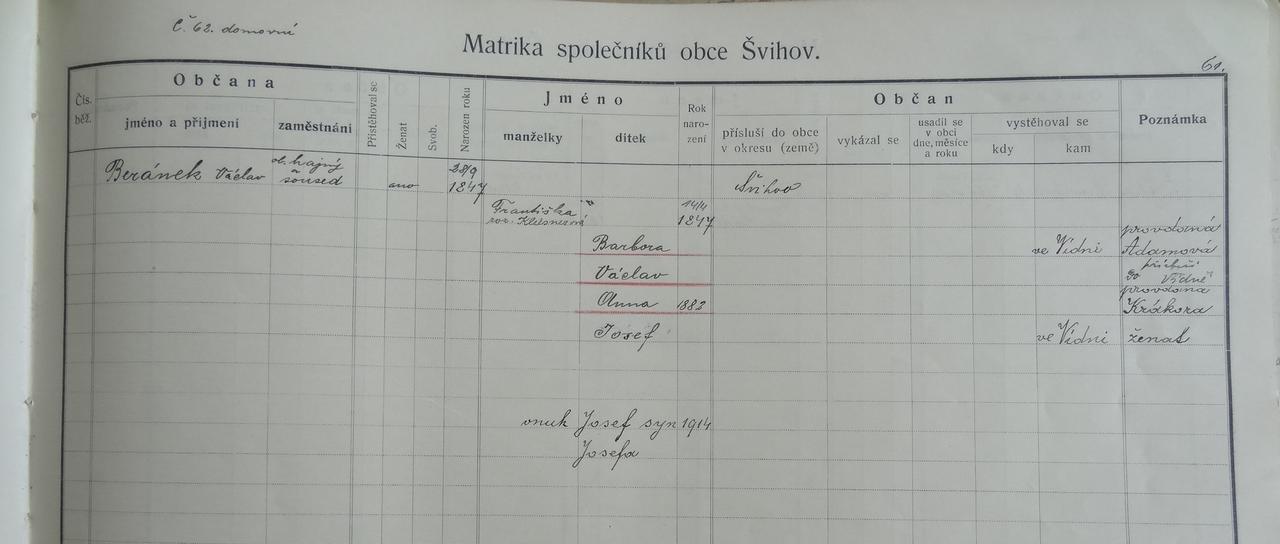 Č. 62. domovní
Matrika společníků obce Švihov.
61.
Čís. běž.
Občana
jméno a příjmení
zaměstnání
Přistěhoval se
Ženat
Svob.
Narozen roku
Jméno
manželky
dítek
Rok naro- zení
Občan
přísluší do obce v okresu (země)
vykázal se
usadil se v obci dne, měsíce a roku
vystěhoval se
kdy
kam
Poznámka
Beránek Václav
ob. hajný
soused
ano
28/9
1847
Švihov
Františka
roz.
14/4
1847
Barbora
ve Vídni
provdaná
Adamová
Václav
do Vídně
Anna 1882
provdaná
Krákora
Josef
ve Vídni
ženat
vnuk Josef syn 1914
Josefa